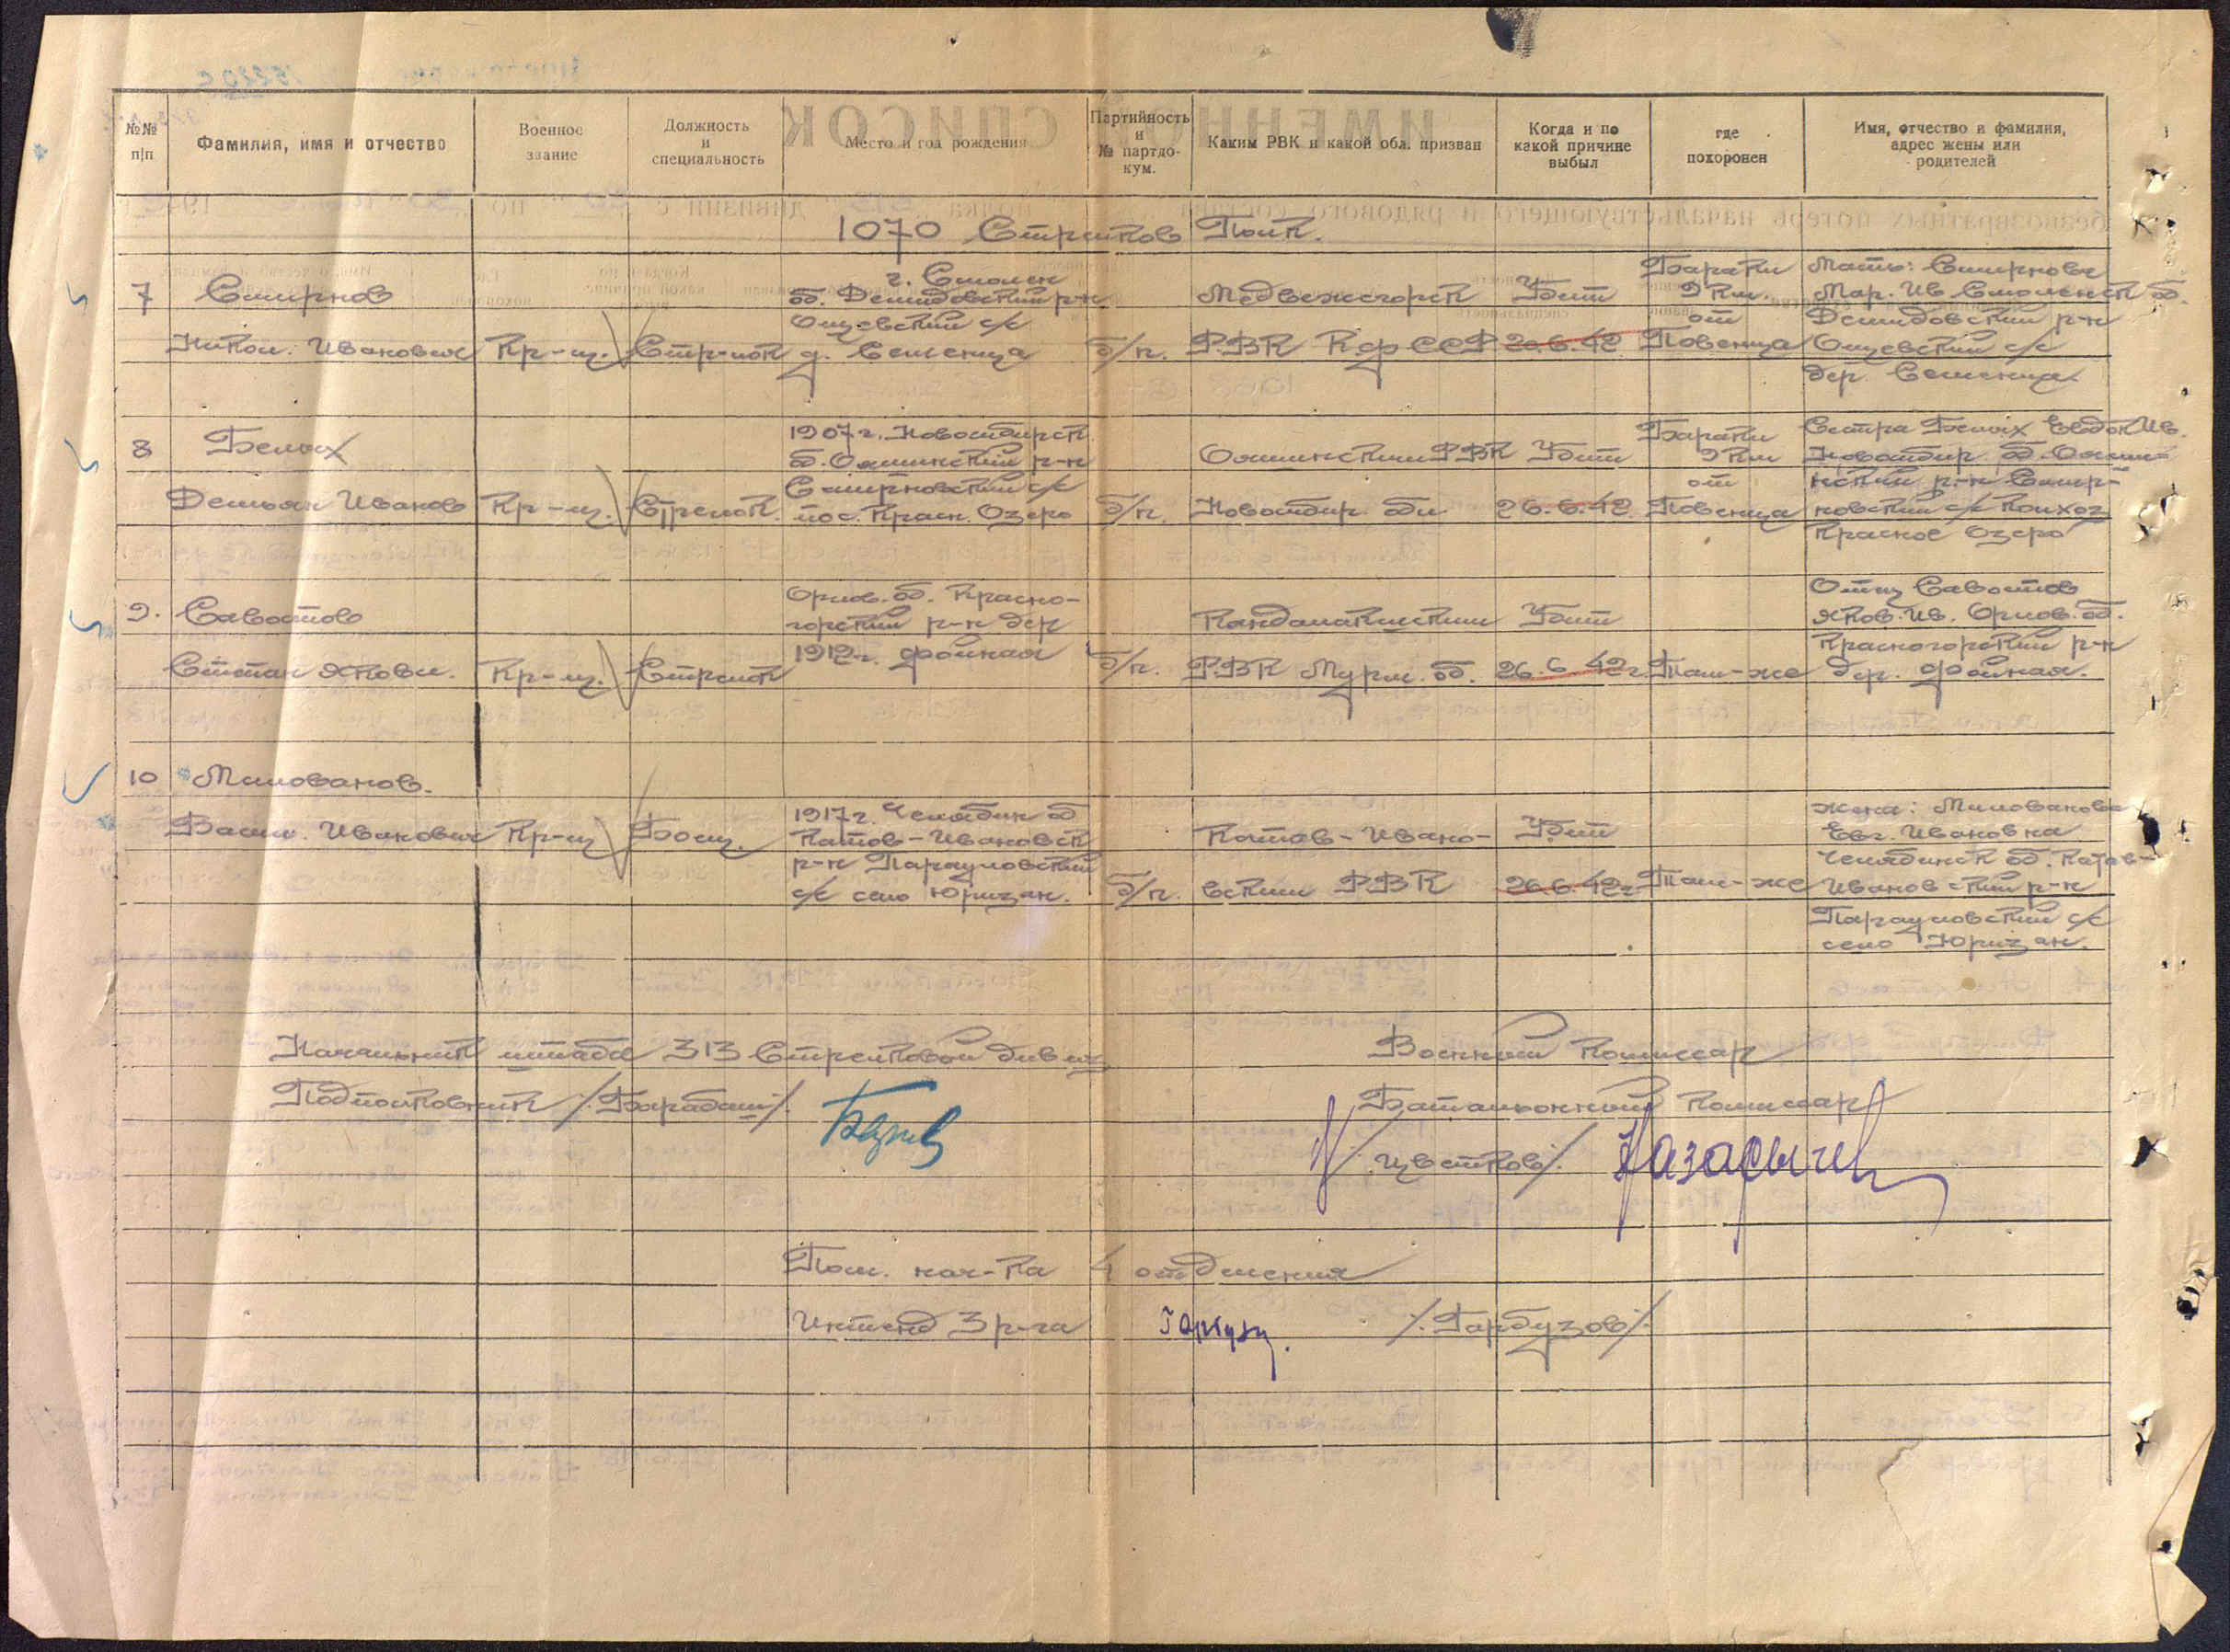 №№ п|п
Фамилия, имя и отчество
Военное звание
Должность и специальность
Место и год рождения
Партийность и № партдо-кум.
Каким РВК и какой обл. призван
Когда и по какой причине выбыл
где похоронен
Имя, отчество и фамилия, адрес жены или родителей
1070 Стрелков Полк.
7
Смирнов
Никол. Иванович
Кр-ц.
Стр-лок
г. Смолен
об. Демидовский р-н
Ощевский с/с
д. Семенца
б/п.
Медвежегорск
РВК К.ф ССР
Убит
26.6.42
Бараки
9 км.
от
Повенца
Мать: Смирнова
Мар. Ив Смоленск об.
Демидовский р-н
Ощевский с/с
дер. Семенца.
8
Белых
Демьян Иванов
Кр-ц.
Стрелок.
1907 г. Новосибирск.
об. Ояшинский р-н
Смирновский с/с
пос. Красн. Озеро
б/п.
Ояшинский РВК
Новосибир. обл
Убит
26.6.42.
Бараки
9 км
от
Повенца
Сестра Белых Евдок Ив.
Новосибир. об. Ояши-
нский р-н Смир-
новский с/с Колхоз
Красное Озеро
9.
Савостов
Степан Яковл.
Кр-ц.
Стрелок
Орлов. об. Красно-
горский р-н дер
1912 г. Фошная
б/п.
Кандалакшский
РВК Мурм. об.
Убит
26.6 42 г.
Там-же
Отец Савостов
Яков. Ив. Орлов. об.
Красногорский р-н
дер. Фошная.
10
Милованов.
Васил. Иванович
Кр-ц
Боец.
1917 г. Челябин об
Катов-Ивановск
р-н Парауловский
с/с село Юризан.
б/п.
Катав-Ивано-
вский РВК
Убит
26.6.42 г.
Там-же
жена: Милованова
Евг. Ивановна
Челябинск об. Катав-
Ивановский р-н
Парауловский с/с
село Юризан.
Начальник штаба 313 Стрелковой дивиз
Подполковник /Барабаш/.
Военный Комиссар
Батальонный Комиссар
/Цветков/.
Пом. нач-ка 4 отделения
Интенд 3 р-га
/.Гарбузов/.